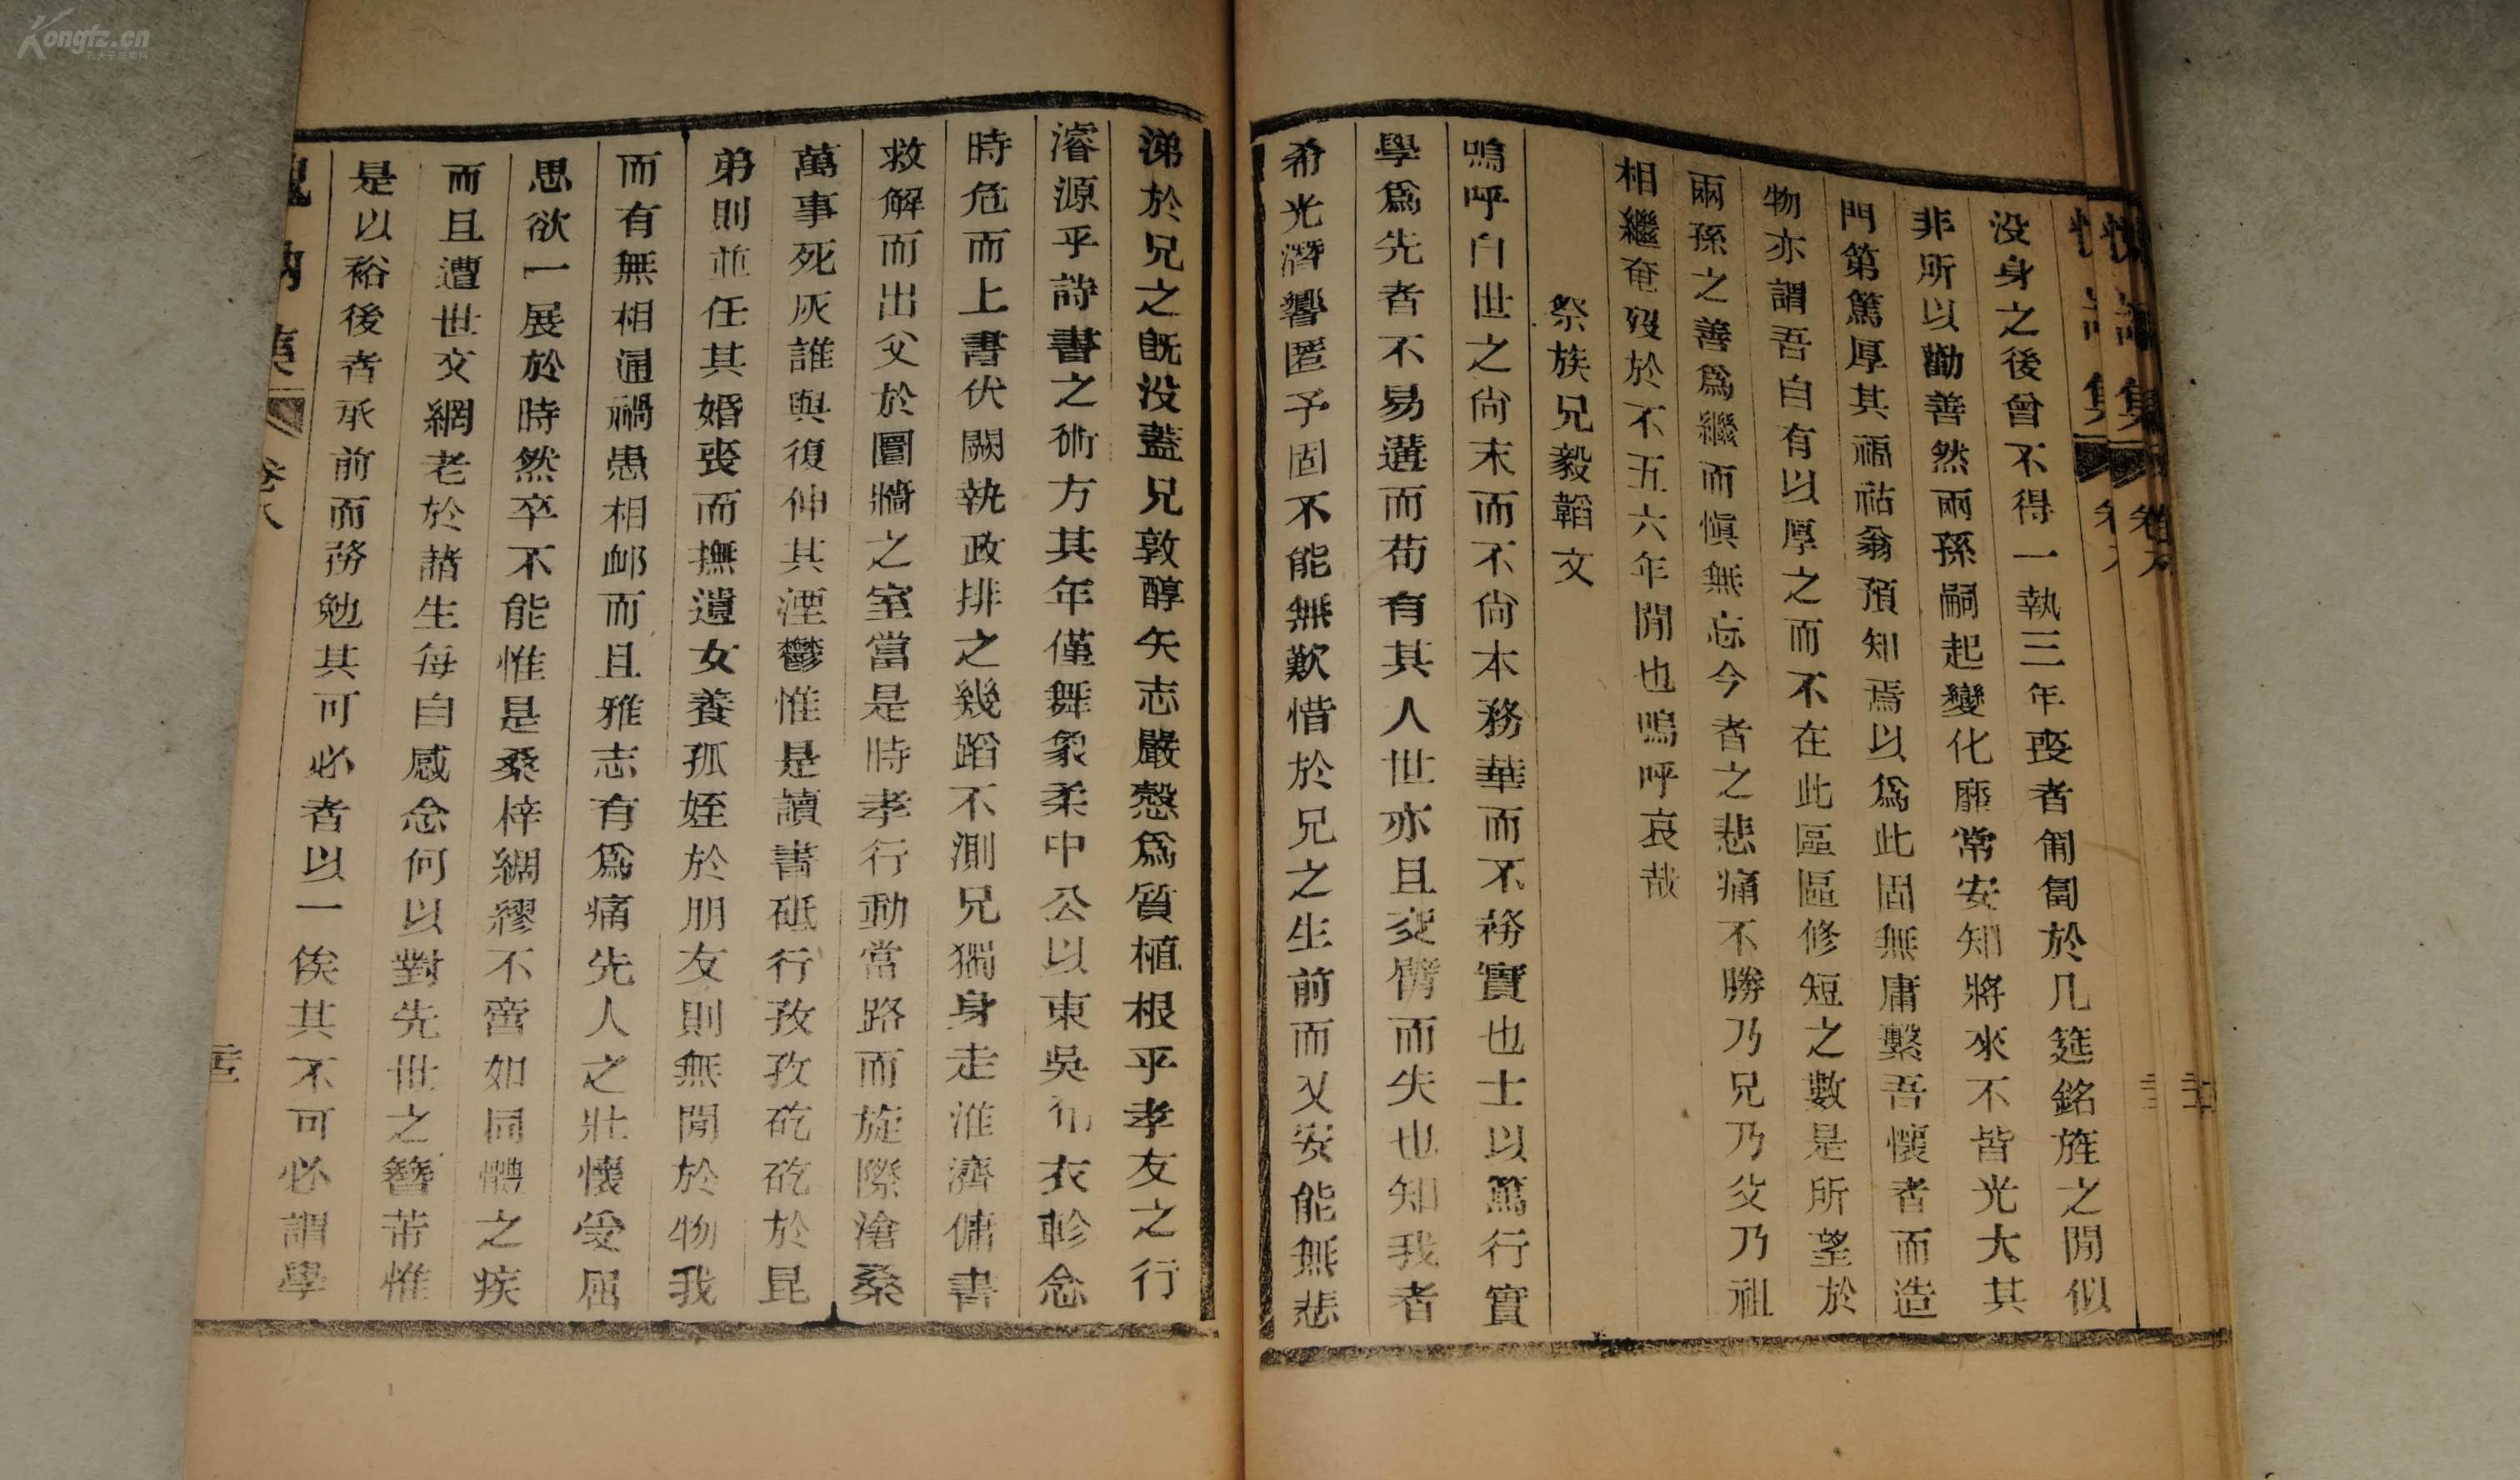 没身之後曾不得一執三年喪者匍匐於几筵銘旌之閒似
非所以勸善然兩孫嗣起變化靡常安知將來不皆光大其
門第篤厚其福祜翁預知焉以爲此固無庸繫吾懷者而造
物亦謂吾自有以厚之而不在此區區修短之數是所望於
兩孫之善爲繼而慎無忘今者之悲痛不勝乃兄乃父乃祖
相繼奄殁於不五六年閒也嗚呼哀哉
祭族兄毅韜文
嗚呼自世之尙末而不尙本務華而不務實也士以篤行實
學爲先者不易遘而苟有其人世亦且交臂而失也知我者
希光潛響匿予固不能無歎惜於兄之生前而又安能無悲
涕於兄之旣没蓋兄敦醇矢志嚴慤爲質植根乎孝友之行
濬源乎詩書之術方其年僅舞象柔中公以東吳布衣軫念
時危而上書伏闕執政排之幾蹈不測兄獨身走淮濟傭書
救解而出父於圜牆之室當是時孝行動當路而旋際滄桑
萬事死灰誰與復伸其湮鬱惟是讀書砥行孜孜矻矻於昆
弟則並任其婚喪而撫遺女養孤姪於朋友則無閒於物我
而有無相通禍患相卹而且雅志有爲痛先人之壯懷受屈
思欲一展於時然卒不能惟是桑梓綢繆不啻如同體之疾
而且遭世文網老於諸生每自感念何以對先世之簪芾惟
是以裕後者承前而務勉其可必者以一俟其不可必謂學
集 卷八
Kongfz.cn